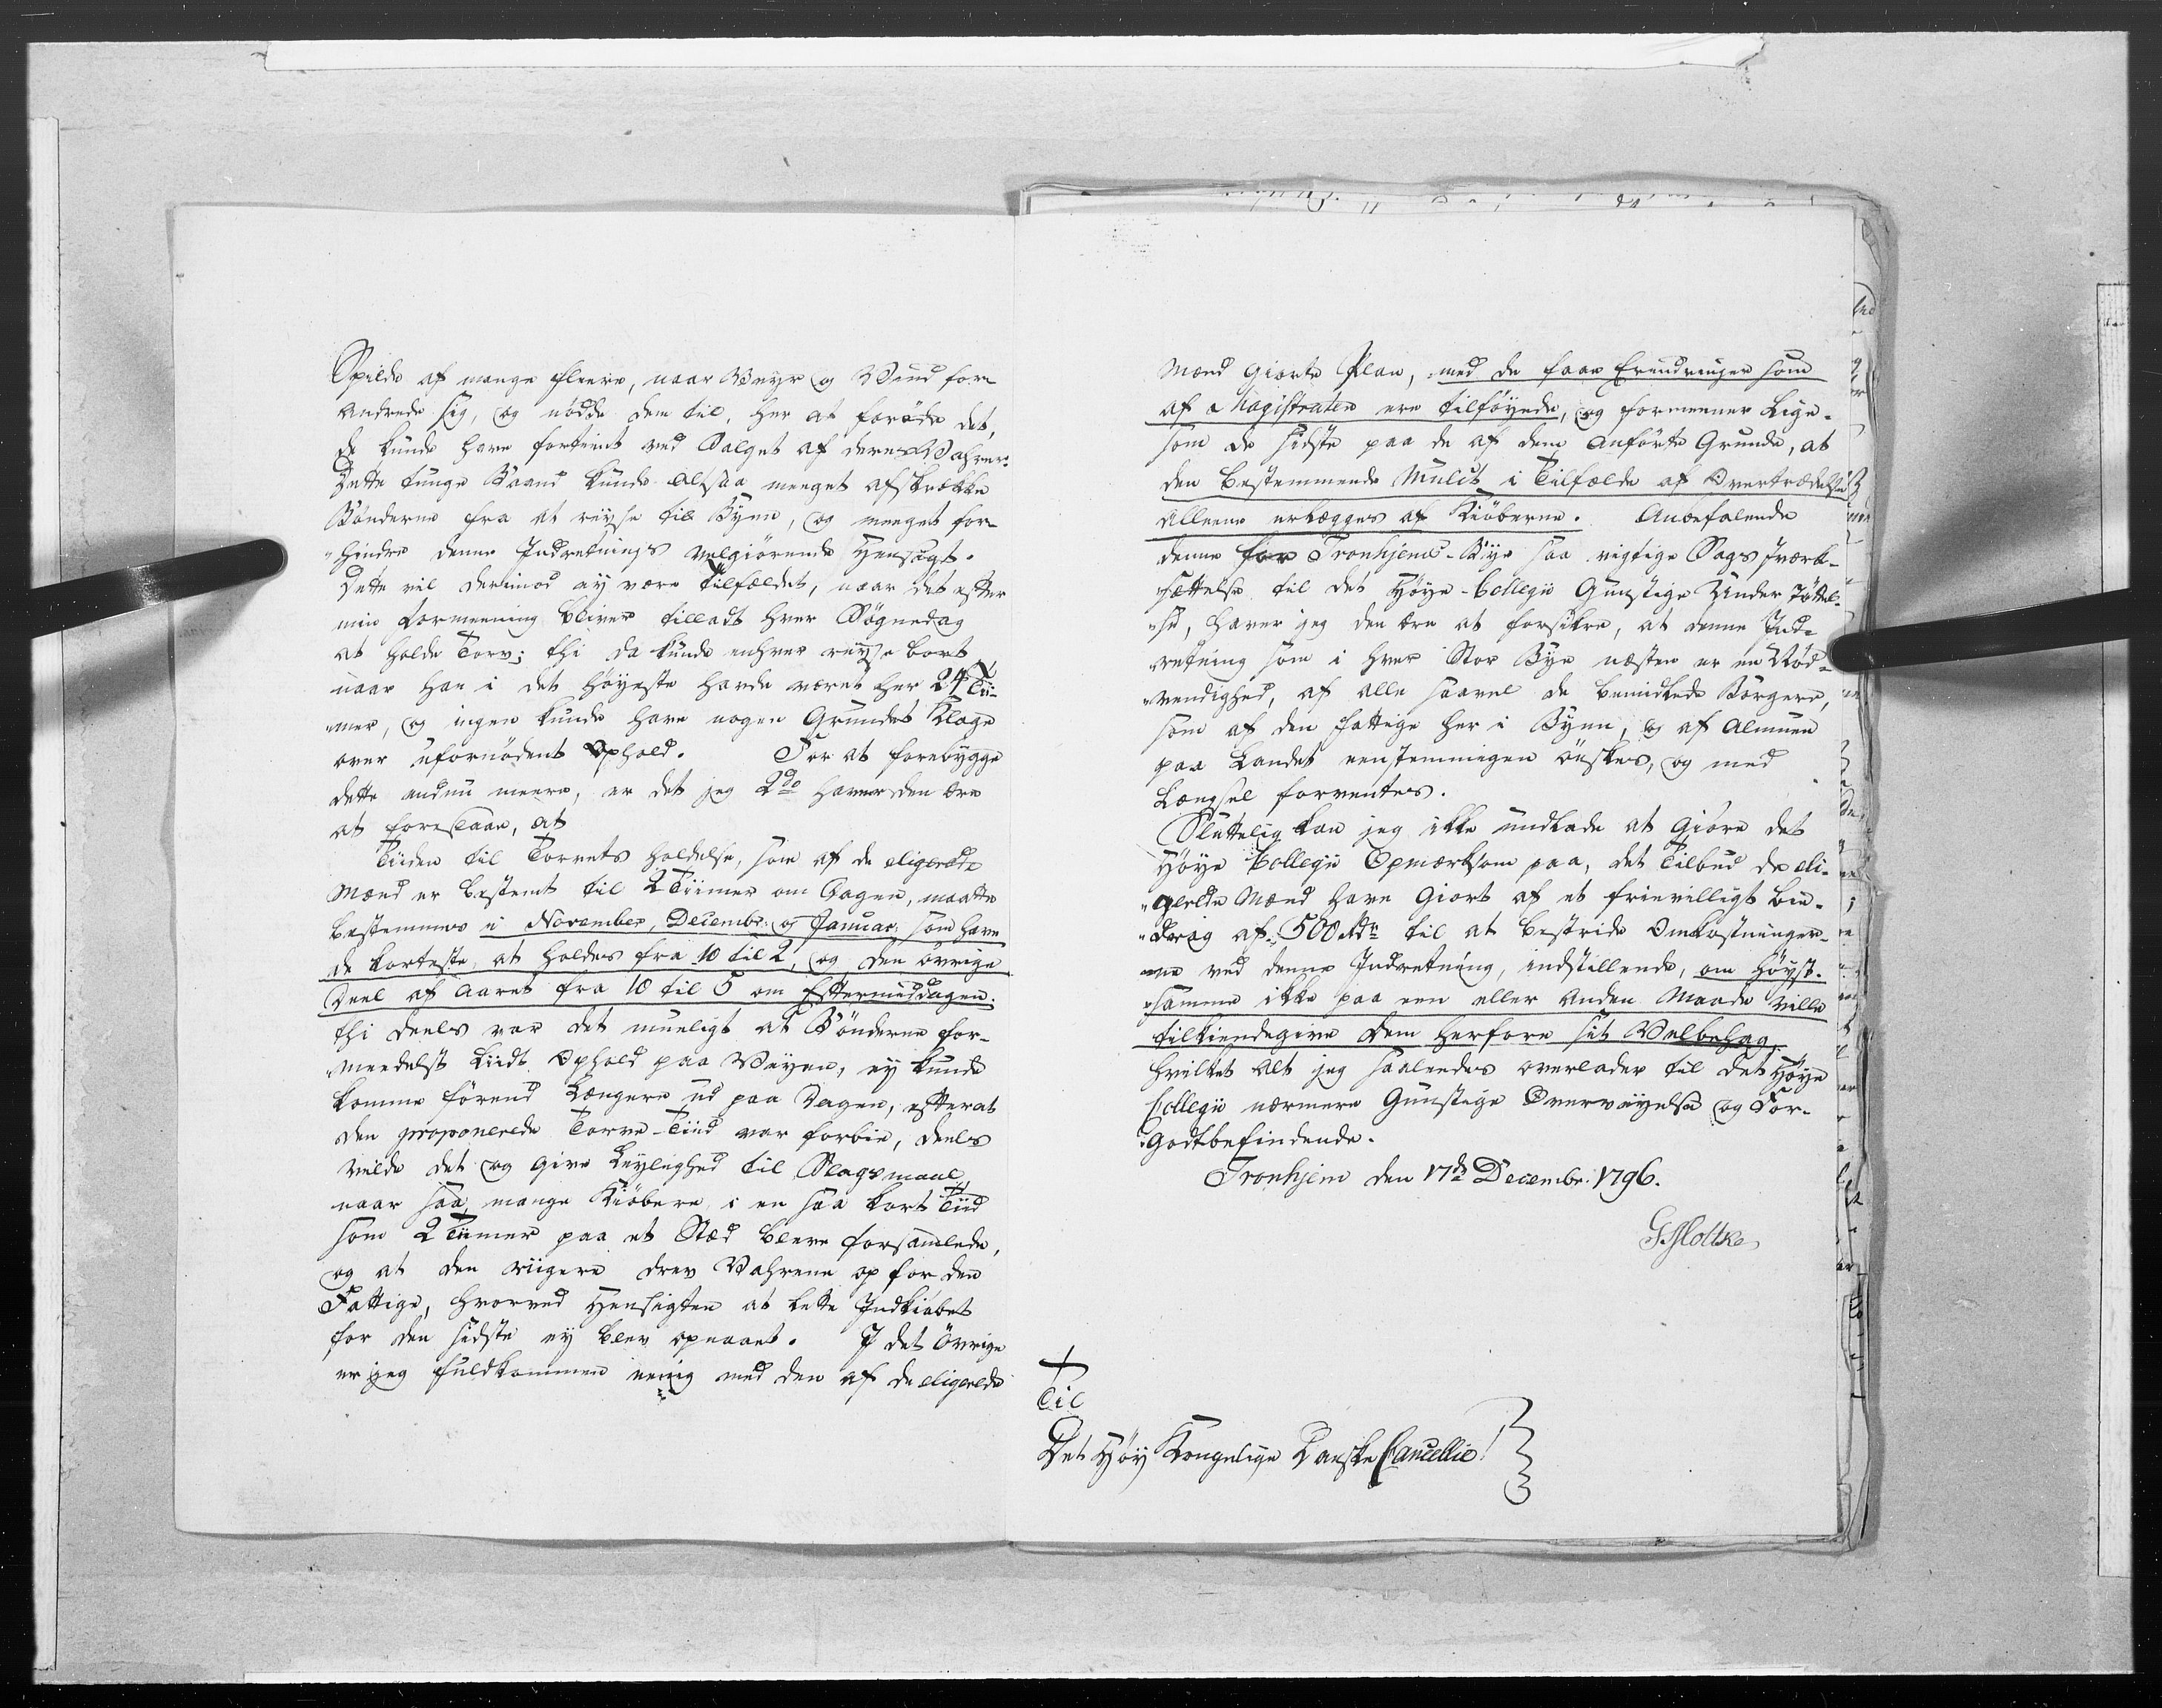 Spilde af mange fleere, naar Veyr og Vind for-
andrede sig, og nødde dem til, her at forøde det,
de kunde have fortient ved Salget af deres Vahrer.
Dette tunge Baand kunde altsaa meeget afskrække
Bønderne fra at reyse til Byen, og meeget for-
hindre denne Indretnings velgiørende Hensigt.
Dette vil derimod ey være Tilfældet, naar det efter
min Formeening bliver tilladt hver Søgnedag
at holde Torv; thi da kunde enhver reyse bort
naar han i det høyeste havde været her 24 Tii-
mer, og ingen kunde have nogen Grundet Klage
over ufornødent Ophold. For at forebygge
dette endnu meere, er det jeg 2do haver den ære
at foreslaae, at
Tiiden til Torvets holdelse, som af de eligerede
Mænd er bestemt til 2 Tiimer om Dagen, maatte
bestemmes i November, Decembr: og Januar: som have
de korteste, at holdes fra 10 til 2, og den øvrige
Deel af Aaret fra 10 til 5 om Eftermiddagen.
thi deels var det mueligt at Bønderne for-
meedelst Liidt Ophold paa Veyen, ey kunde
komme førend Længere ud paa Dagen, efterat
den proponerede Torve-Tiid var forbie, deels
vilde det og give Leylighed til Slagsmaal,
naar saa mange Kiøbere i en saa kort Tiid
som 2 Tiimer paa et Stæd bleve forsamlede,
og at den riigere drev Vahrene op for den
Fattige, hvorved Hensigten at lette Indkiøbet
for den sidste ey blev opnaaet. I det Øvrige
er jeg fuldkommen eenig med den af de eligerede
Mænd giorte Plan, med de faae Erindringer som
af Magistraten ere tilføyede, og formeener Lige-
som de sidste paa de af dem anførte Grunde, at
den bestemmende Mulct i Tilfælde af Overtrædelse
alleene erlægges af Kiøberne. Anbefalende
denne for Tronhjems-Bye saa vigtige Sags Iværk-
sættelse til det Høye-Collegii Gunstige Under støttel-
se, haver jeg den ære at forsikre, at denne Ind-
retning som i hver Stor Bye næsten er en Nød-
vendighed, af alle saavel de bemidlede Borgere,
som af den fattige her i Byen, og af Almuen
paa Landet eenstemmigen ønskes, og med
Længsel forventes.
Sluttelig kan jeg ikke undlade at giøre det
Høye Collegii Opmærksom paa, det Tilbud de eli-
gerede Mænd have giort af et frievilligt bie-
drag af 500 Rdr til at bestride Omkostninger-
ne ved denne Indretning, indstillende, om høyst-
samme ikke paa een eller anden Maade ville
tilkiendegive dem herfore sit Velbehag,
hvilket alt jeg saaleedes overlader til det Høye
Collegii nærmere Gunstige Overveyelse og For-
godtbefindende.
Tronhjem den 17de Decembr: 1796.
G Moltke
Til
Det Høy Kongelige Danske Cancellie!